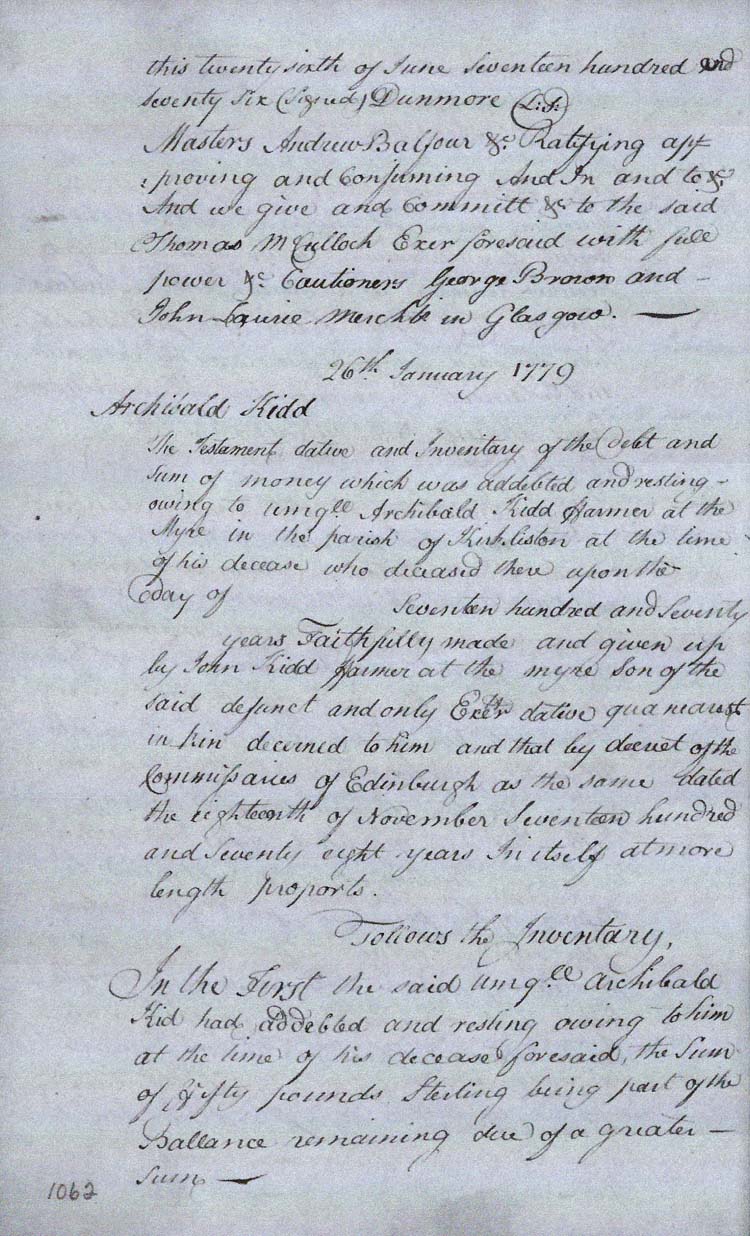 this twenty sixth of June Seventeen hundred and
Seventy Six (Signed) Dunmore (L.S.)
Masters Andrew Balfour &c. Ratifying app
:proving and Confirming And In and to &c.
And we give and Committ &c. to the said
Thomas McCulloch Exer foresaid with full
power &c. Cautioners George Brown and –
John Laurie Merchts in Glasgow. —
26th. January 1779
Archibald Kidd
The Testament dative and Inventary of the Debt and
Sum of money which was addebted and resting –
owing to umqll Archibald Kidd ffarmer at the
Myre in the parish of Kirkliston at the time
of his decease who deceased there upon the
day of
Seventeen hundred and Seventy
years Faithfully made and given up
by John Kidd ffarmer at the myre Son of the
Said defunct and only Exer dative qua nearest
in kin decerned to him and that by decreet of the
Commissaries of Edinburgh as the same dated
the eighteenth of November Seventeen hundred
and Seventy eight years In itself at more
length proports.
Follows the Inventary,
In the First the said umq.ll Archibald
Kid had addebted and resting owing to him
at the time of his decease foresaid, the Sum
of ffifty pounds Sterling being part of the
Ballance remaining due of a greater –
Sum —
1062